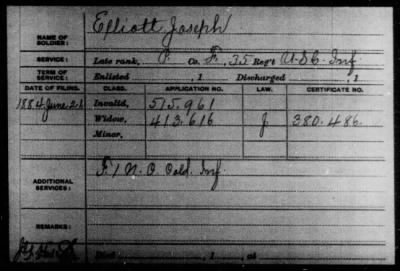 NAME OF SOLDIER: Elliott, Joseph
SERVICE: Late rank, P Co. F, 35 Reg't U.S.C. Inf
TERM OF SERVICE: Enlisted , 1 Discharged , 1
DATE OF FILING. CLASS. APPLICATION NO. LAW. CERTIFICATE NO.
1884 June 26 Invalid, 515.961
Widow, 413.616 J 380.486.
Minor,
ADDITIONAL SERVICES: F 1 N.C. Cold. Inf
REMARKS: